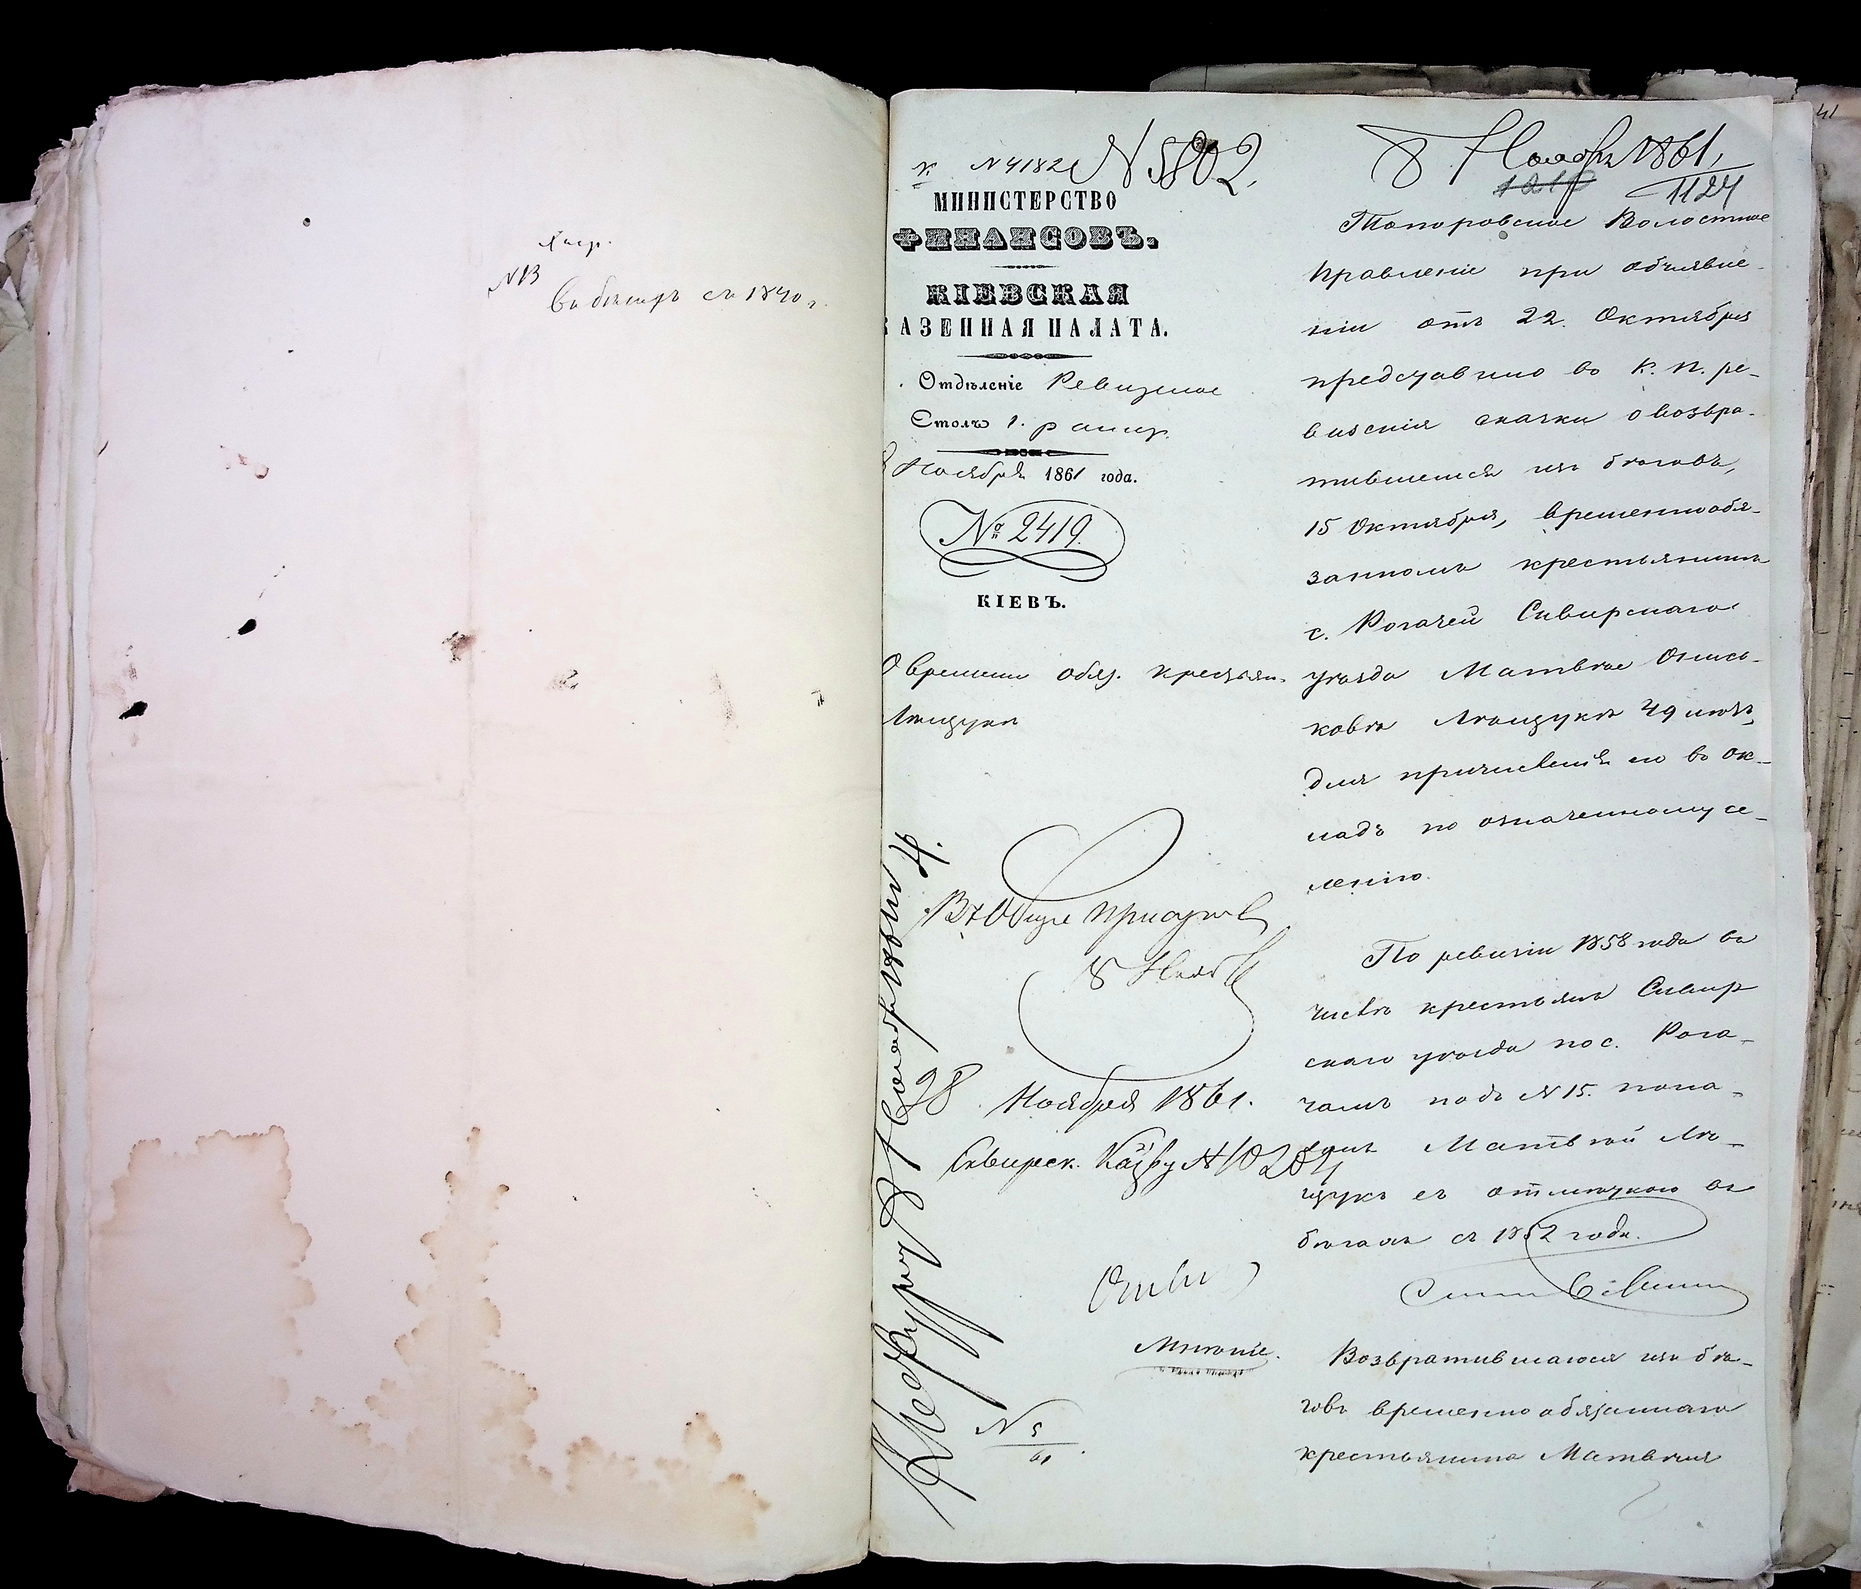 N13
въ бѣгахъ съ 1840 г.
N 4182 N 5802.
МИНИСТЕРСТВО
ФИНАНСОВЪ.
КІЕВСКАЯ
КАЗЕННАЯ ПАЛАТА.
Отдѣленіе Ревизское
Столъ 1.
8 Ноября 1861 года.
№ 2419.
КІЕВЪ.
О временно обяз. крестьян.
Лящукѣ
8 Ноября
28 Ноября 1861.
Сквирск. Казву N 10204
Мнѣніе.
N 5
61
8 Ноября 1861,
1124
Топоровское Волостное
Правленіе при объявле-
ніи отъ 22. Октября
представило въ К. П. ре-
визскія сказки о возвра-
тившемся изъ бѣговъ,
15 Октября, временнообя-
занномъ крестьянинѣ
с. Рогачей Сквирскаго
уѣзда Матвѣе Онись-
ковѣ Лящукѣ 49 лѣтъ,
для причисленія его въ ок-
ладъ по означенному се-
ленію.
По ревизіи 1858 года въ
числѣ крестьянъ Сквир
скаго уѣзда по с. Рога-
чамъ подъ N 15. пока-
занъ Матвѣй Ля-
щукъ съ отмѣткою въ
бѣгахъ съ 1852 года.
Возвратившагося изъ бѣ-
говъ временнообязаннаго
крестьянина Матвѣя